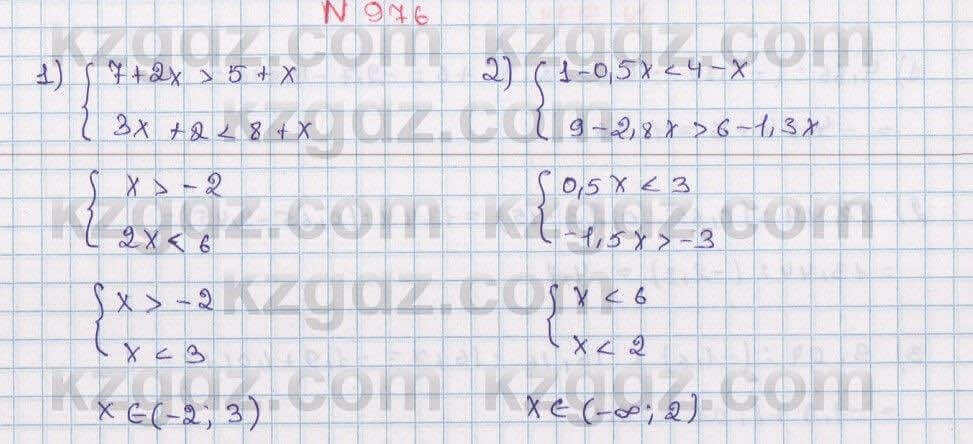 N 976
1) { 7+2x > 5+x
3x +2 < 8+x
{ x > -2
2x < 6
{ x > -2
x < 3
x ∈ (-2; 3)
2) { 1-0,5x < 4-x
9-2,8x > 6-1,3x
{ 0,5x < 3
-1,5x > -3
{ x < 6
x < 2
x ∈ (-∞; 2)
kzgdz.com kzgdz.com
kzgdz.com
kzgdz.com kzgdz.com
kzgdz.com
kzgdz.com kzgdz.com